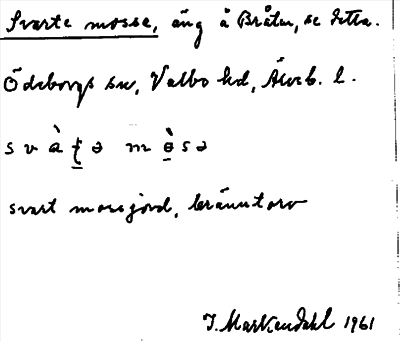 Svarte mosse, äng å Bråten, se detta.
Ödeborgs sn, Valbo hd, Älvsb. l.
s v à ṯ ə m ò̱ s ə
svart mossjord, bränntorv
J. Markendahl 1961